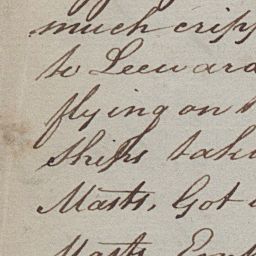 much cripp
to Leeward
flying on
Ships taki
Masts, Got
Masts